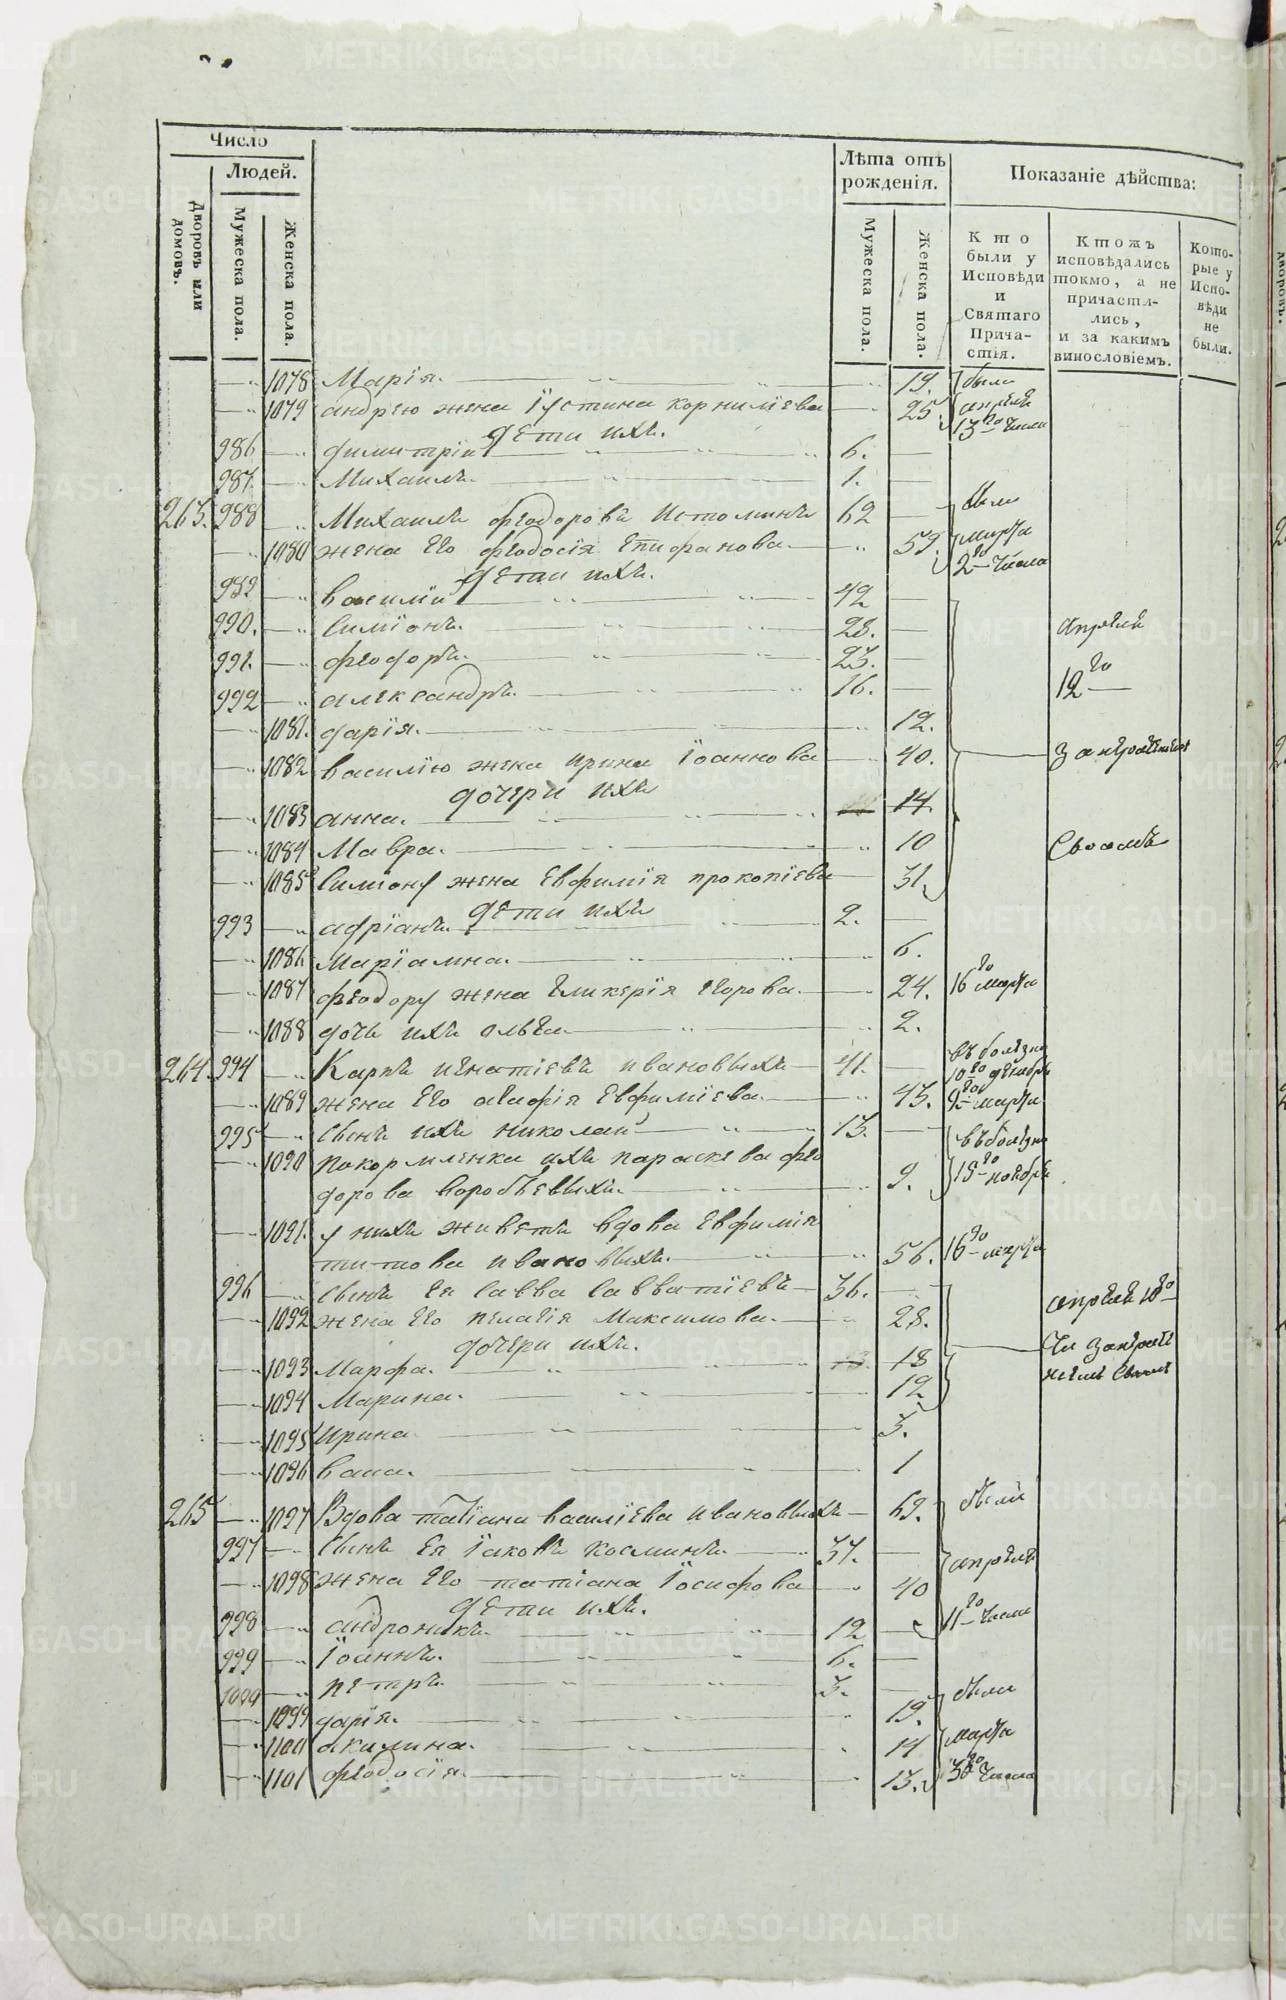 Число
Людей.
Дворовъ или домовъ.
Мужеска пола.
Женска пола.
Лѣта отъ рожденія.
Мужеска пола.
Женска пола.
Показаніе дѣйства:
Кто были у Исповѣди и Святаго Причастія.
Ктожъ исповѣдались токмо, а не причастились, и за какимъ винословіемъ.
Которые у Исповѣди не были.
1078 Марія. 19. были
1079 андрею жена Іустина корниліева 25. апреля
дети ихъ. 13го числа
986 димитрій 6.
987. Михаилъ. 1.
263. 988 Михаилъ феодоровъ Истоминъ 62 были
1080 жена Его феодосія Епифанова 59. марта
дети ихъ. 2го числа
989 василій 42
990. Симіонъ. 28. апреля
991. феодоръ. 23.
992 александръ. 16. 12го
1081. дарія. 12.
1082 василію жена ирина Іоаннова 40.
дочери ихъ
1083 анна. 14.
1084 Мавра. 10
1085 Симіону жена Евфимія прокопіева 31.
дети ихъ
993 адріанъ. 2.
1086 Маріамна. 6.
1087 феодору жена Гликерія Егорова. 24. 16го марта
1088 дочь ихъ ольга 2.
264. 994 Карпъ игнатіевъ ивановыхъ 41. въ болезни 10го декабря
1089 жена Его агафія Евфиміева. 43. 9го марта
995 сынъ ихъ николай 13. въ болезни
1090 покормленка ихъ параскева фео
дорова воробьевыхъ. 9. 15го ноября
1091. у нихъ живетъ вдова Евфимія
титова ивановыхъ. 56. 16го марта
996 сынъ Ея Савва Савватіевъ 36. апреля 10го
1092 жена Его пелагія Максимова. 28.
дочери ихъ.
1093 Марфа. 18
1094 Марина. 12
1095 Ирина 3.
1096 васа. 1
265 1097 Вдова татіана василіева ивановыхъ 69. были
997 сынъ Ея Іаковъ косминъ. 37. апреля
1098 жена Его татіана Іосифова 40
дети ихъ. 11го числа
998 андроникъ. 12
999 Іоаннъ. 6.
1000 петръ. 3. были
1099 дарія. 19.
1100 акилина. 14 марта
1101 феодосія. 13. 30го числа
METRIKI.GASO-URAL.RU